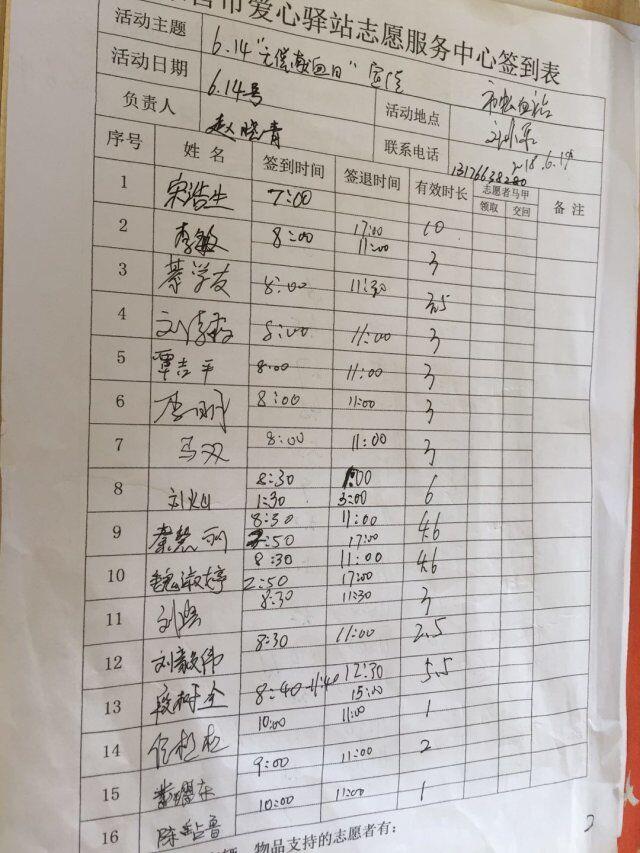 营市爱心驿站志愿服务中心签到表
活动主题 6.14"无偿献血日"宣传
活动日期 6.14号 活动地点 市血站
负责人 赵晓青 联系电话 13176638280
序号 姓名 签到时间 签退时间 有效时长 志愿者马甲 备注
领取 交回
1 宋浩生 7:00 17:00 10
2 李敏 8:00 11:00 3
3 綦学友 8:00 11:30 3.5
4 8:00 11:00 3
5 覃吉平 8:00 11:00 3
6 8:00 11:00 3
7 马双 8:00 11:00 3
8 刘灿 8:30 1:30 3:00 6
9 8:30 2:50 11:00 17:00 4.6
10 魏淑婷 8:30 2:50 11:00 17:00 4.6
11 8:30 11:30 3
12 刘毅伟 8:30 11:00 2.5
13 段树全 8:40-11:40 12:30 15:00 5.5
14 10:00 11:00 1
15 9:00 11:00 2
16 10:00 11:00 1
物品支持的志愿者有: